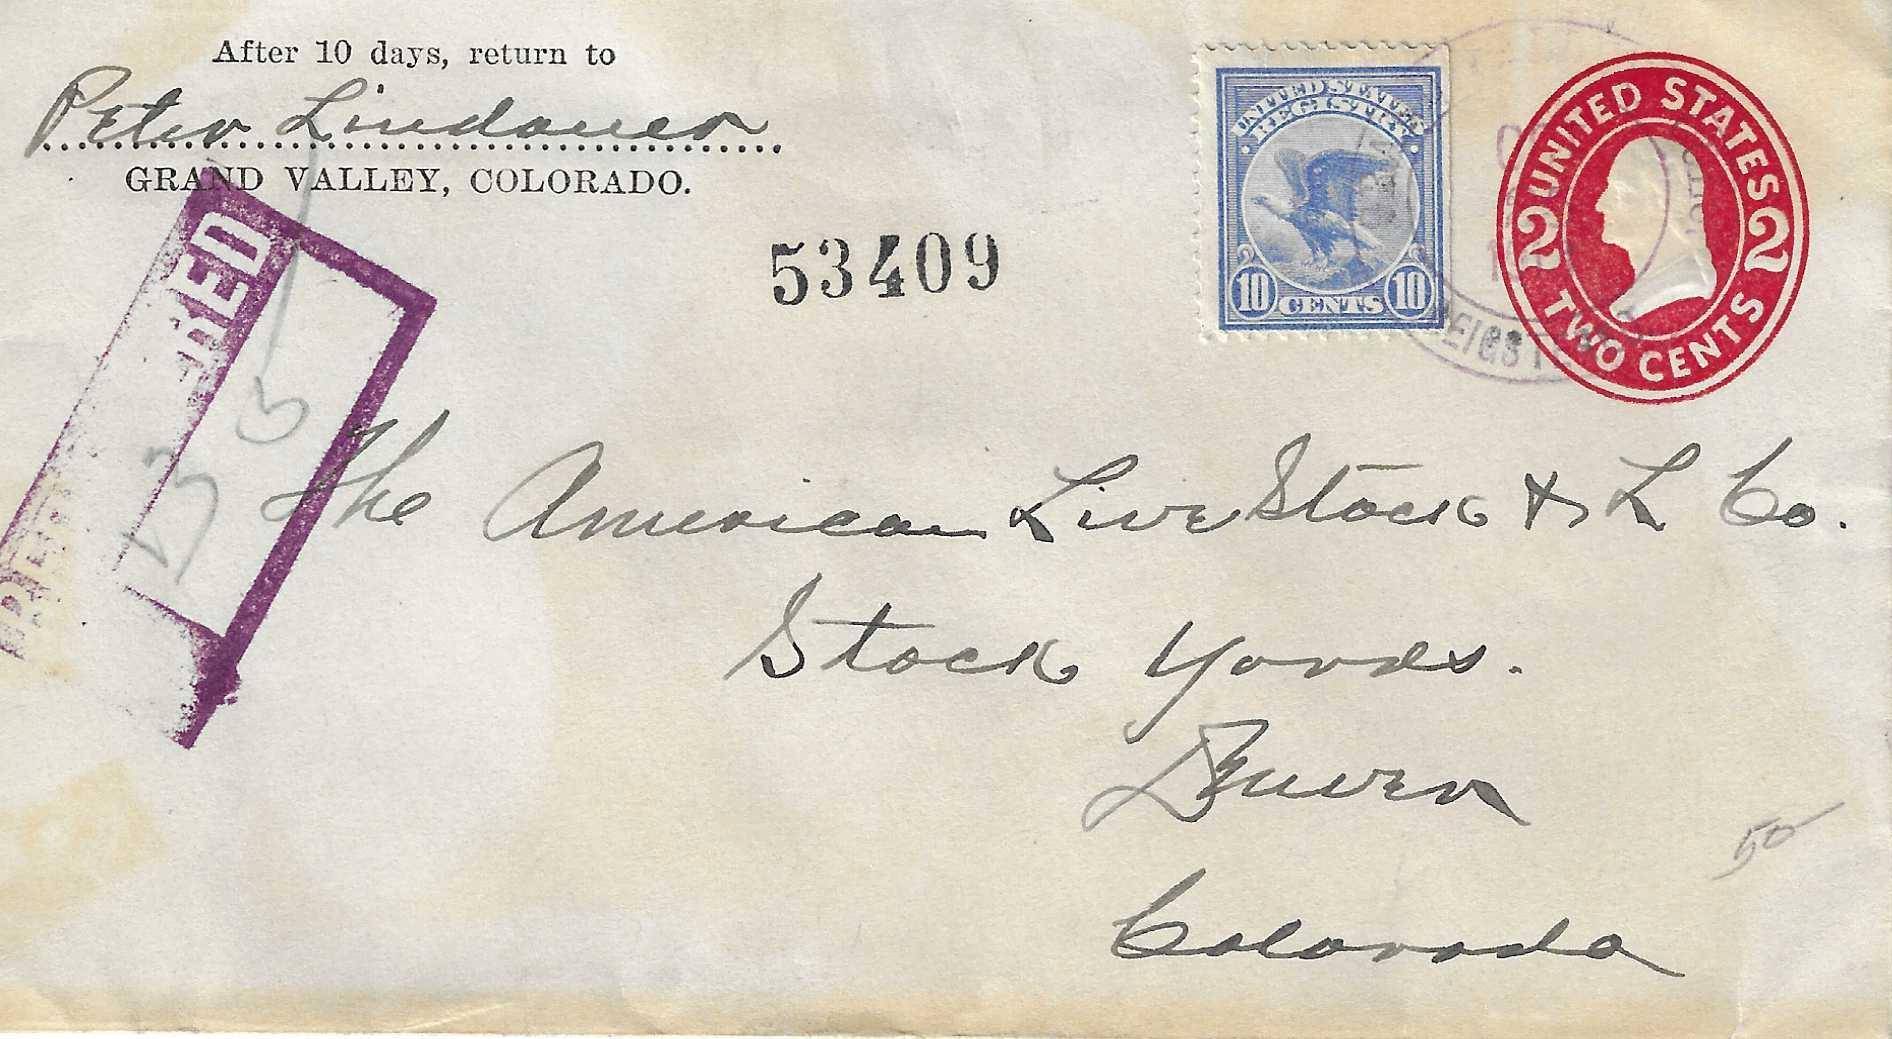 After 10 days, return to
Peter Lindauer
GRAND VALLEY, COLORADO.
53409
UNITED STATES
REGISTRY
10 CENTS 10
UNITED STATES
2 2
TWO CENTS
RED
35
The American Live Stock & L Co.
Stock Yards.
Denver
Colorado
50